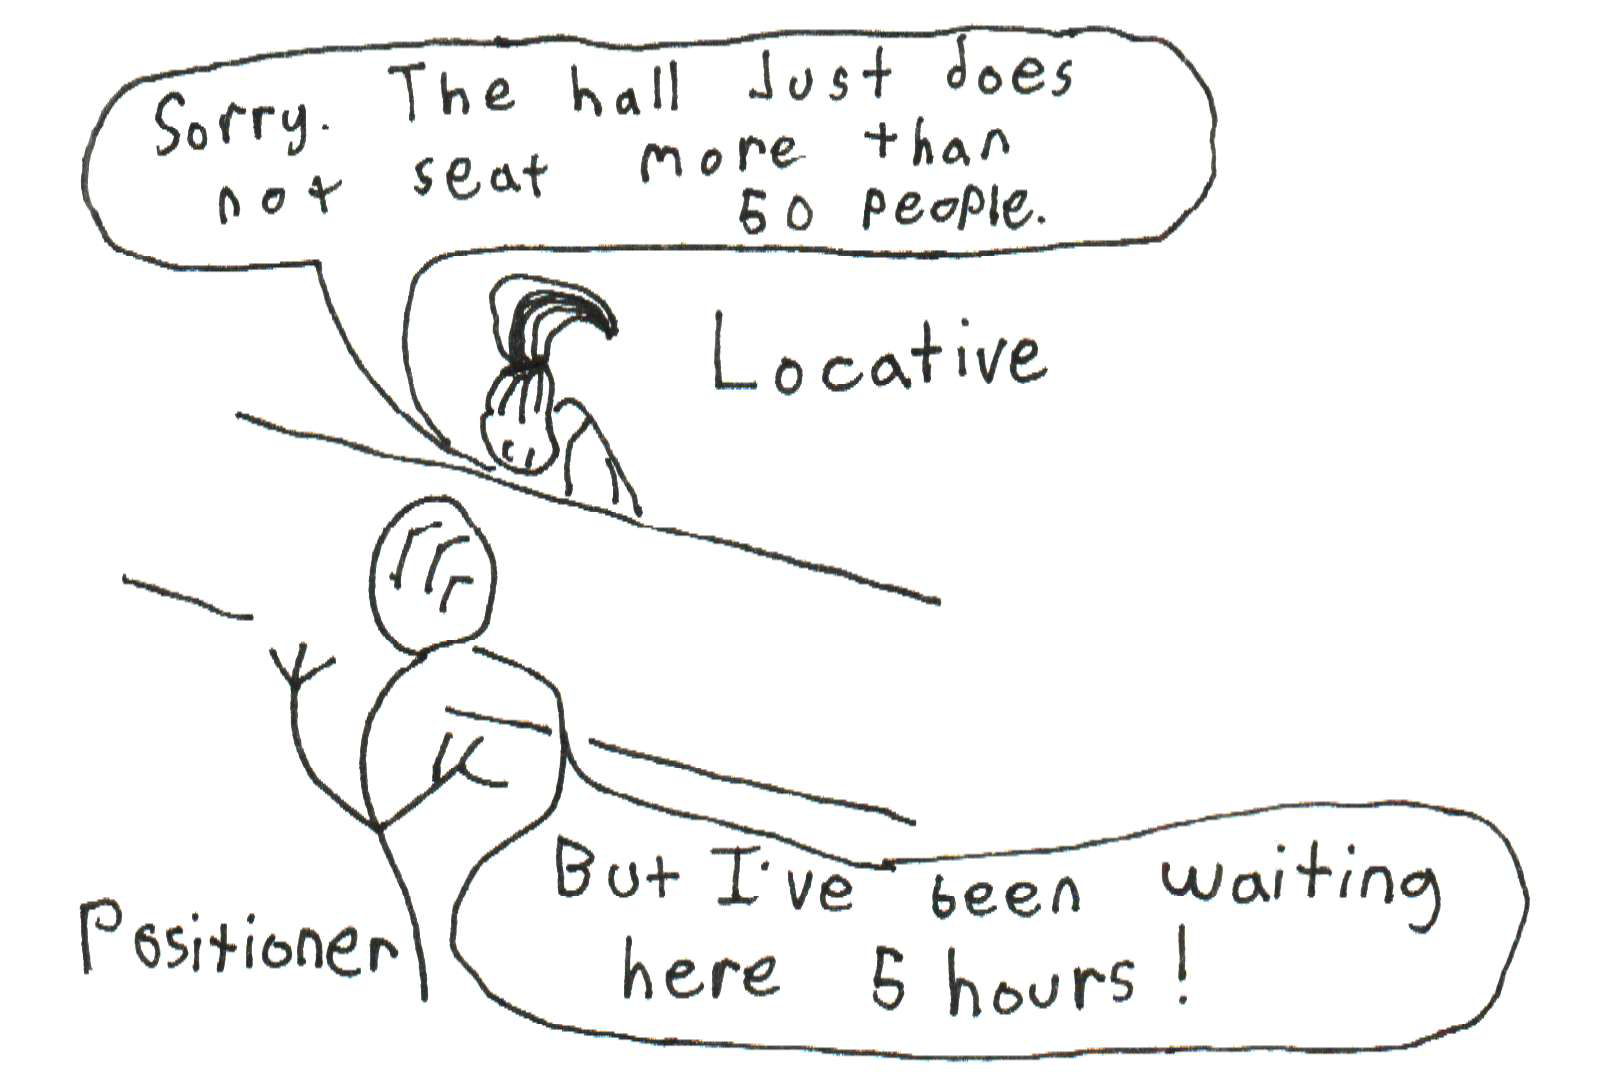 Sorry. The hall Just does
not seat more than
50 people.
Locative
Positioner
But I've been waiting
here 5 hours!